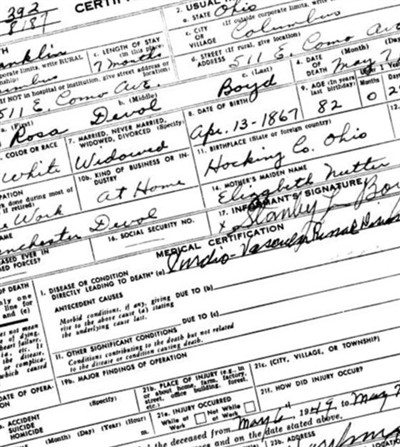 CERTIF
392
8187
2. USUAL
a. STATE Ohio
anklin
c. LENGTH OF STAY
(in this place)
7 months
c. CITY
OR
VILLAGE Columbus
d. STREET (If rural, give location)
ADDRESS 511 E. Como Ave
511 E. Como Ave.
b. (Middle)
c. (Last)
Rosa Devol Boyd
4. DATE (Month) (Day)
OF
DEATH May 7
COLOR OR RACE
White
7. MARRIED, NEVER MARRIED,
WIDOWED, DIVORCED (Specify)
Widowed
8. DATE OF BIRTH
Apr. 13-1867
9. AGE (In years
last birthday)
82
0
10b. KIND OF BUSINESS OR IN-
DUSTRY
At Home
11. BIRTHPLACE (State or foreign country)
Hocking Co. Ohio
e Work
14. MOTHER'S MAIDEN NAME
Elizabeth Nutter
nchester Devol
16. SOCIAL SECURITY NO.
17. INFORMANT'S SIGNATURE
Stanley L Bo
MEDICAL CERTIFICATION
I. DISEASE OR CONDITION
DIRECTLY LEADING TO DEATH* (a)
Cardio-Vascular Renal
ANTECEDENT CAUSES
Morbid conditions, if any, giving
rise to the above cause (a) stating
the underlying cause last.
DUE TO (b)
DUE TO (c)
II. OTHER SIGNIFICANT CONDITIONS
Conditions contributing to the death but not related
to the disease or condition causing death.
DATE OF OPERA-
TION
19b. MAJOR FINDINGS OF OPERATION
ACCIDENT
SUICIDE
HOMICIDE
(Specify)
21b. PLACE OF INJURY (e.g., in
or about home, farm, factory,
21c. (CITY, VILLAGE, OR TOWNSHIP)
(Month) (Day) (Year) (Hour)
21e. INJURY OCCURRED
While at Work
Not While
at Work
21f. HOW DID INJURY OCCUR?
the deceased from May 6 1949 to May 7
and on the date stated above,